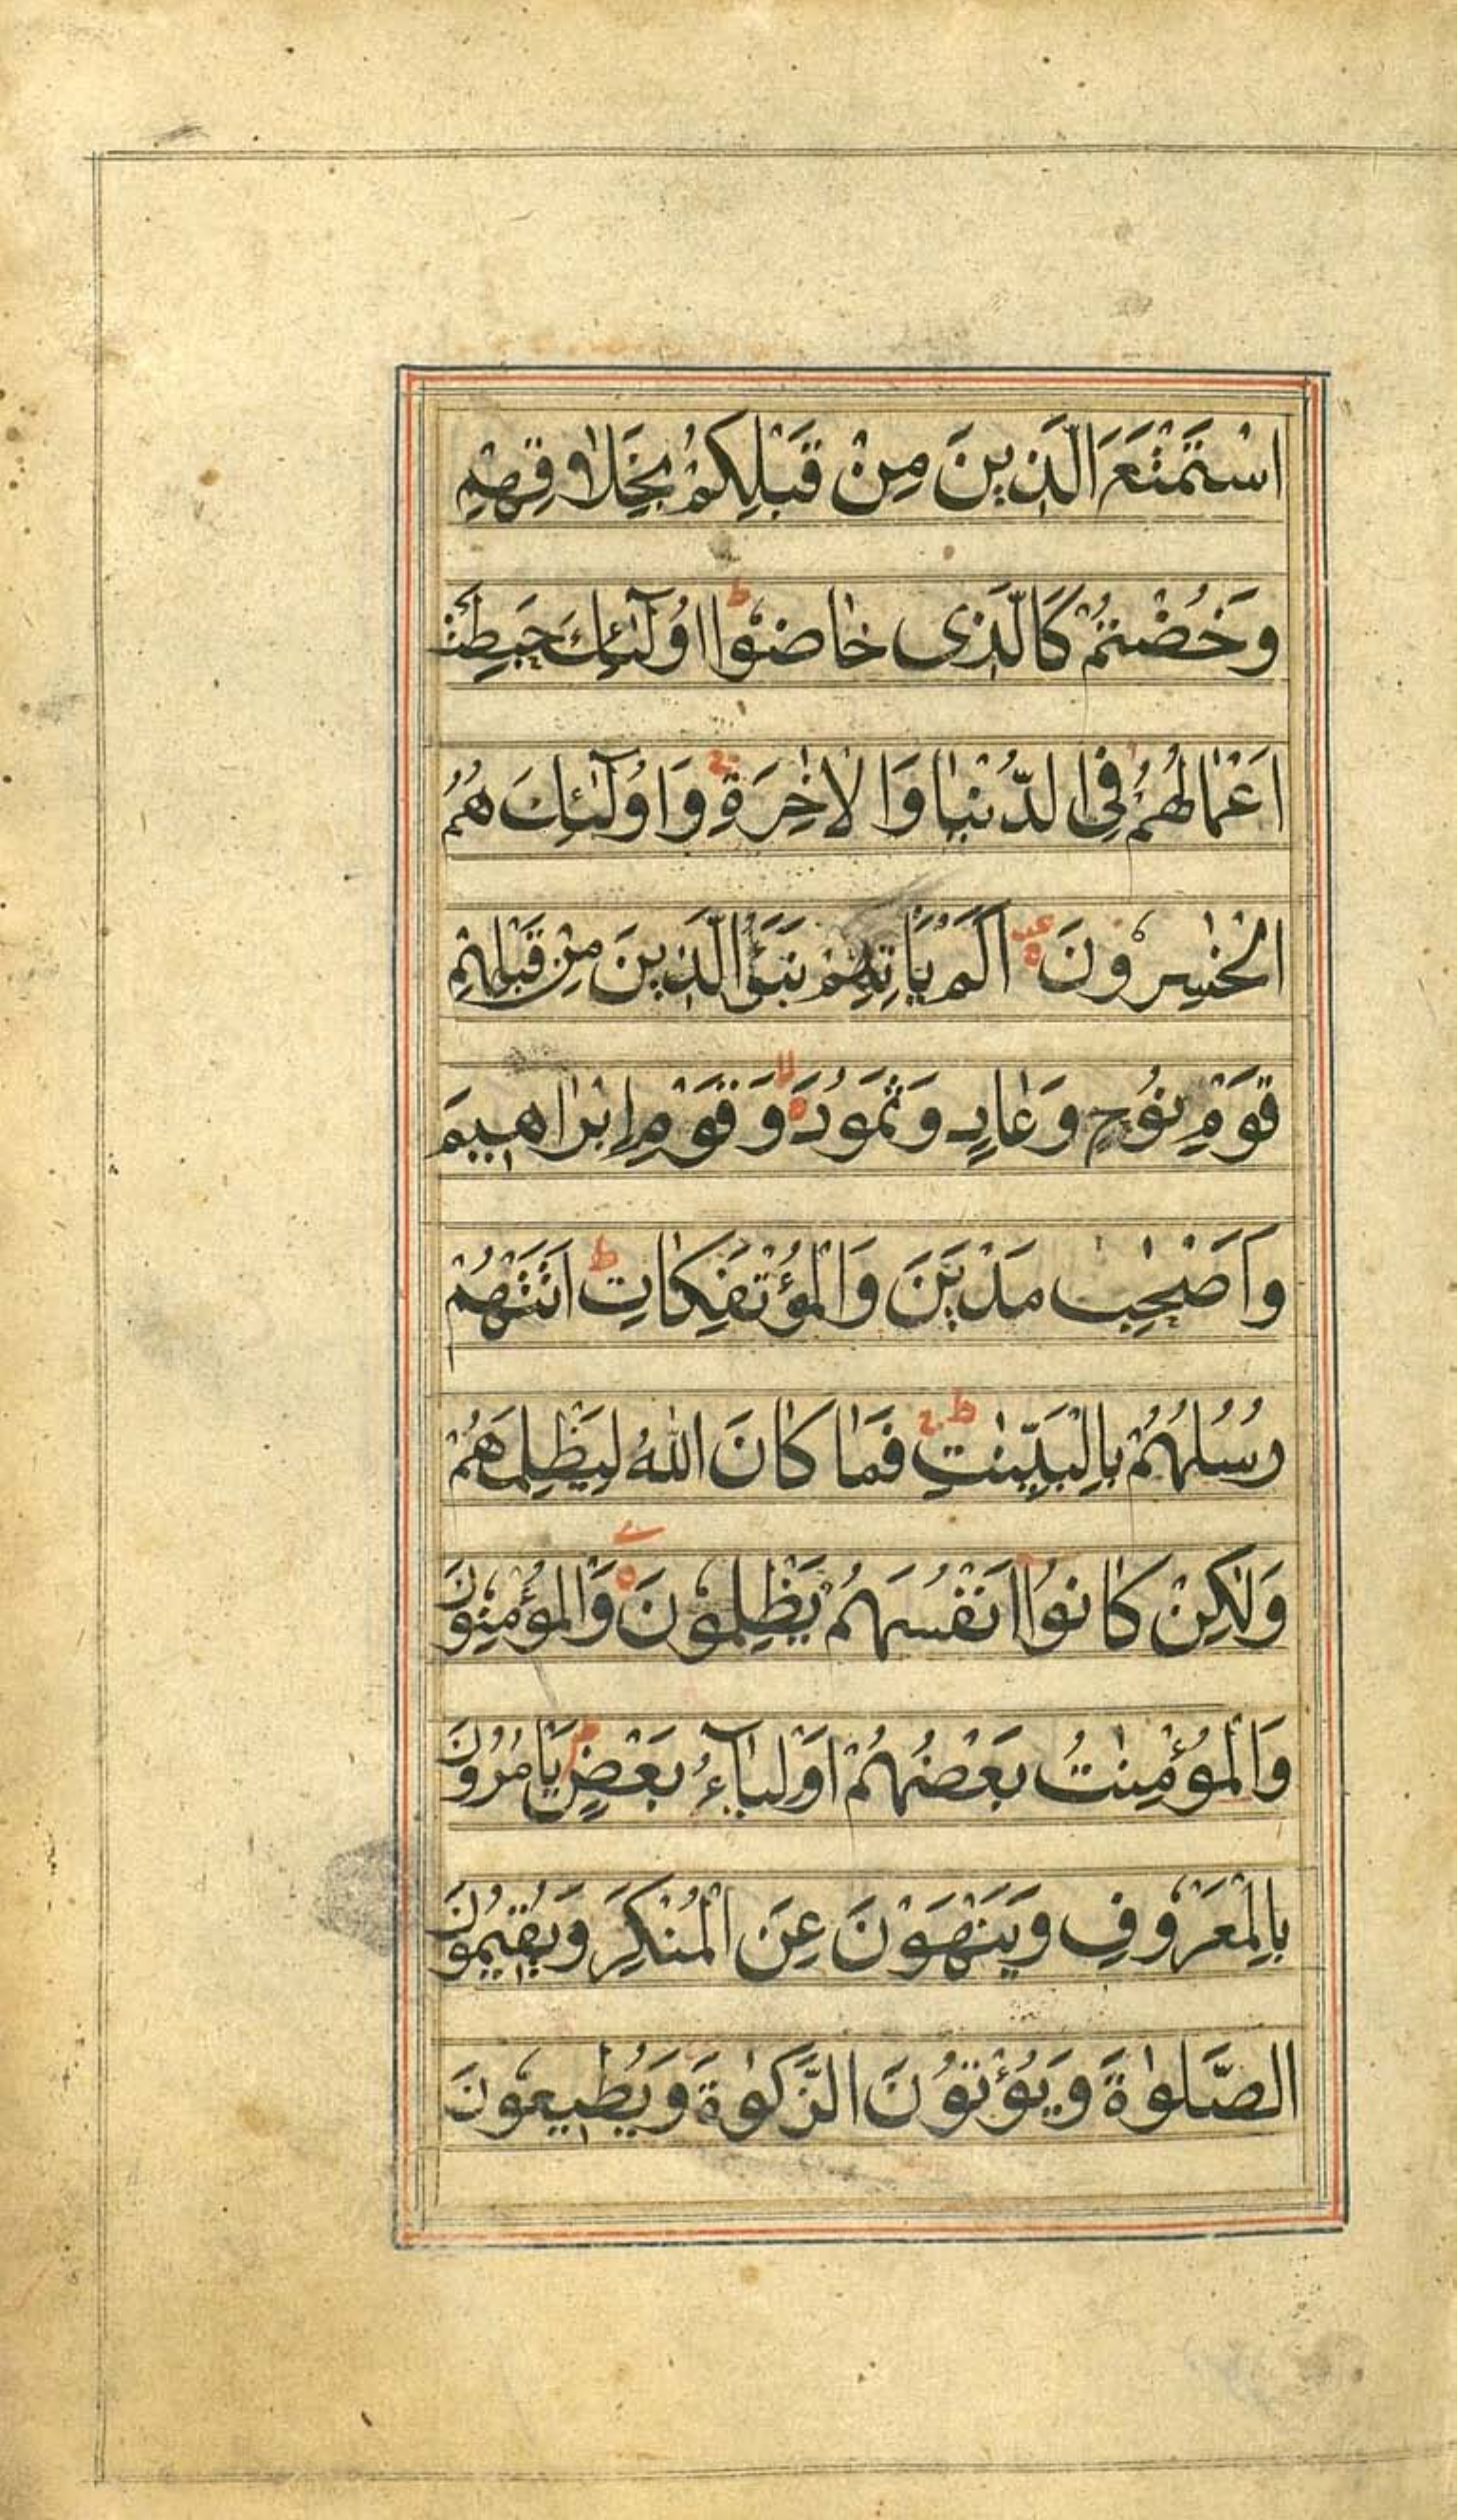 اسْتَمْتَعَ الَّذِينَ مِنْ قَبْلِكُمْ بِخَلَاقِهِمْ
وَخُضْتُمْ كَالَّذِى خَاضُوا ط اُولٰٓئِكَ حَبِطَتْ
اَعْمَالُهُمْ فِى الدُّنْيَا وَالْاٰخِرَةِ ج وَاُولٰٓئِكَ هُمُ
الْخٰسِرُونَ اَلَمْ يَاْتِهِمْ نَبَؤُا الَّذِينَ مِنْ قَبْلِهِمْ
قَوْمِ نُوحٍ وَعَادٍ وَثَمُودَ لا وَقَوْمِ اِبْرَاهِيمَ
وَاَصْحٰبِ مَدْيَنَ وَالْمُؤْتَفِكَاتِ ط اَتَتْهُمْ
رُسُلُهُمْ بِالْبَيِّنٰتِ ط ج فَمَا كَانَ اللّٰهُ لِيَظْلِمَهُمْ
وَلٰكِنْ كَانُوا اَنْفُسَهُمْ يَظْلِمُونَ وَالْمُؤْمِنُونَ
وَالْمُؤْمِنٰتُ بَعْضُهُمْ اَوْلِيَآءُ بَعْضٍ م يَاْمُرُونَ
بِالْمَعْرُوفِ وَيَنْهَوْنَ عَنِ الْمُنْكَرِ وَيُقِيمُونَ
الصَّلٰوةَ وَيُؤْتُونَ الزَّكٰوةَ وَيُطِيعُونَ